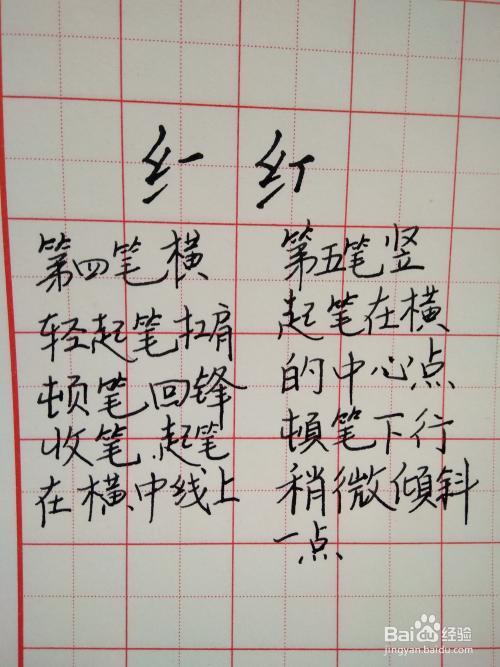 第四笔横
轻起笔扛肩
顿笔回锋
收笔.起笔
在横中线上
第五笔竖
起笔在横
的中心点
頓笔下行
稍微傾斜
一点
Bai du 经验
jingyan.baidu.com